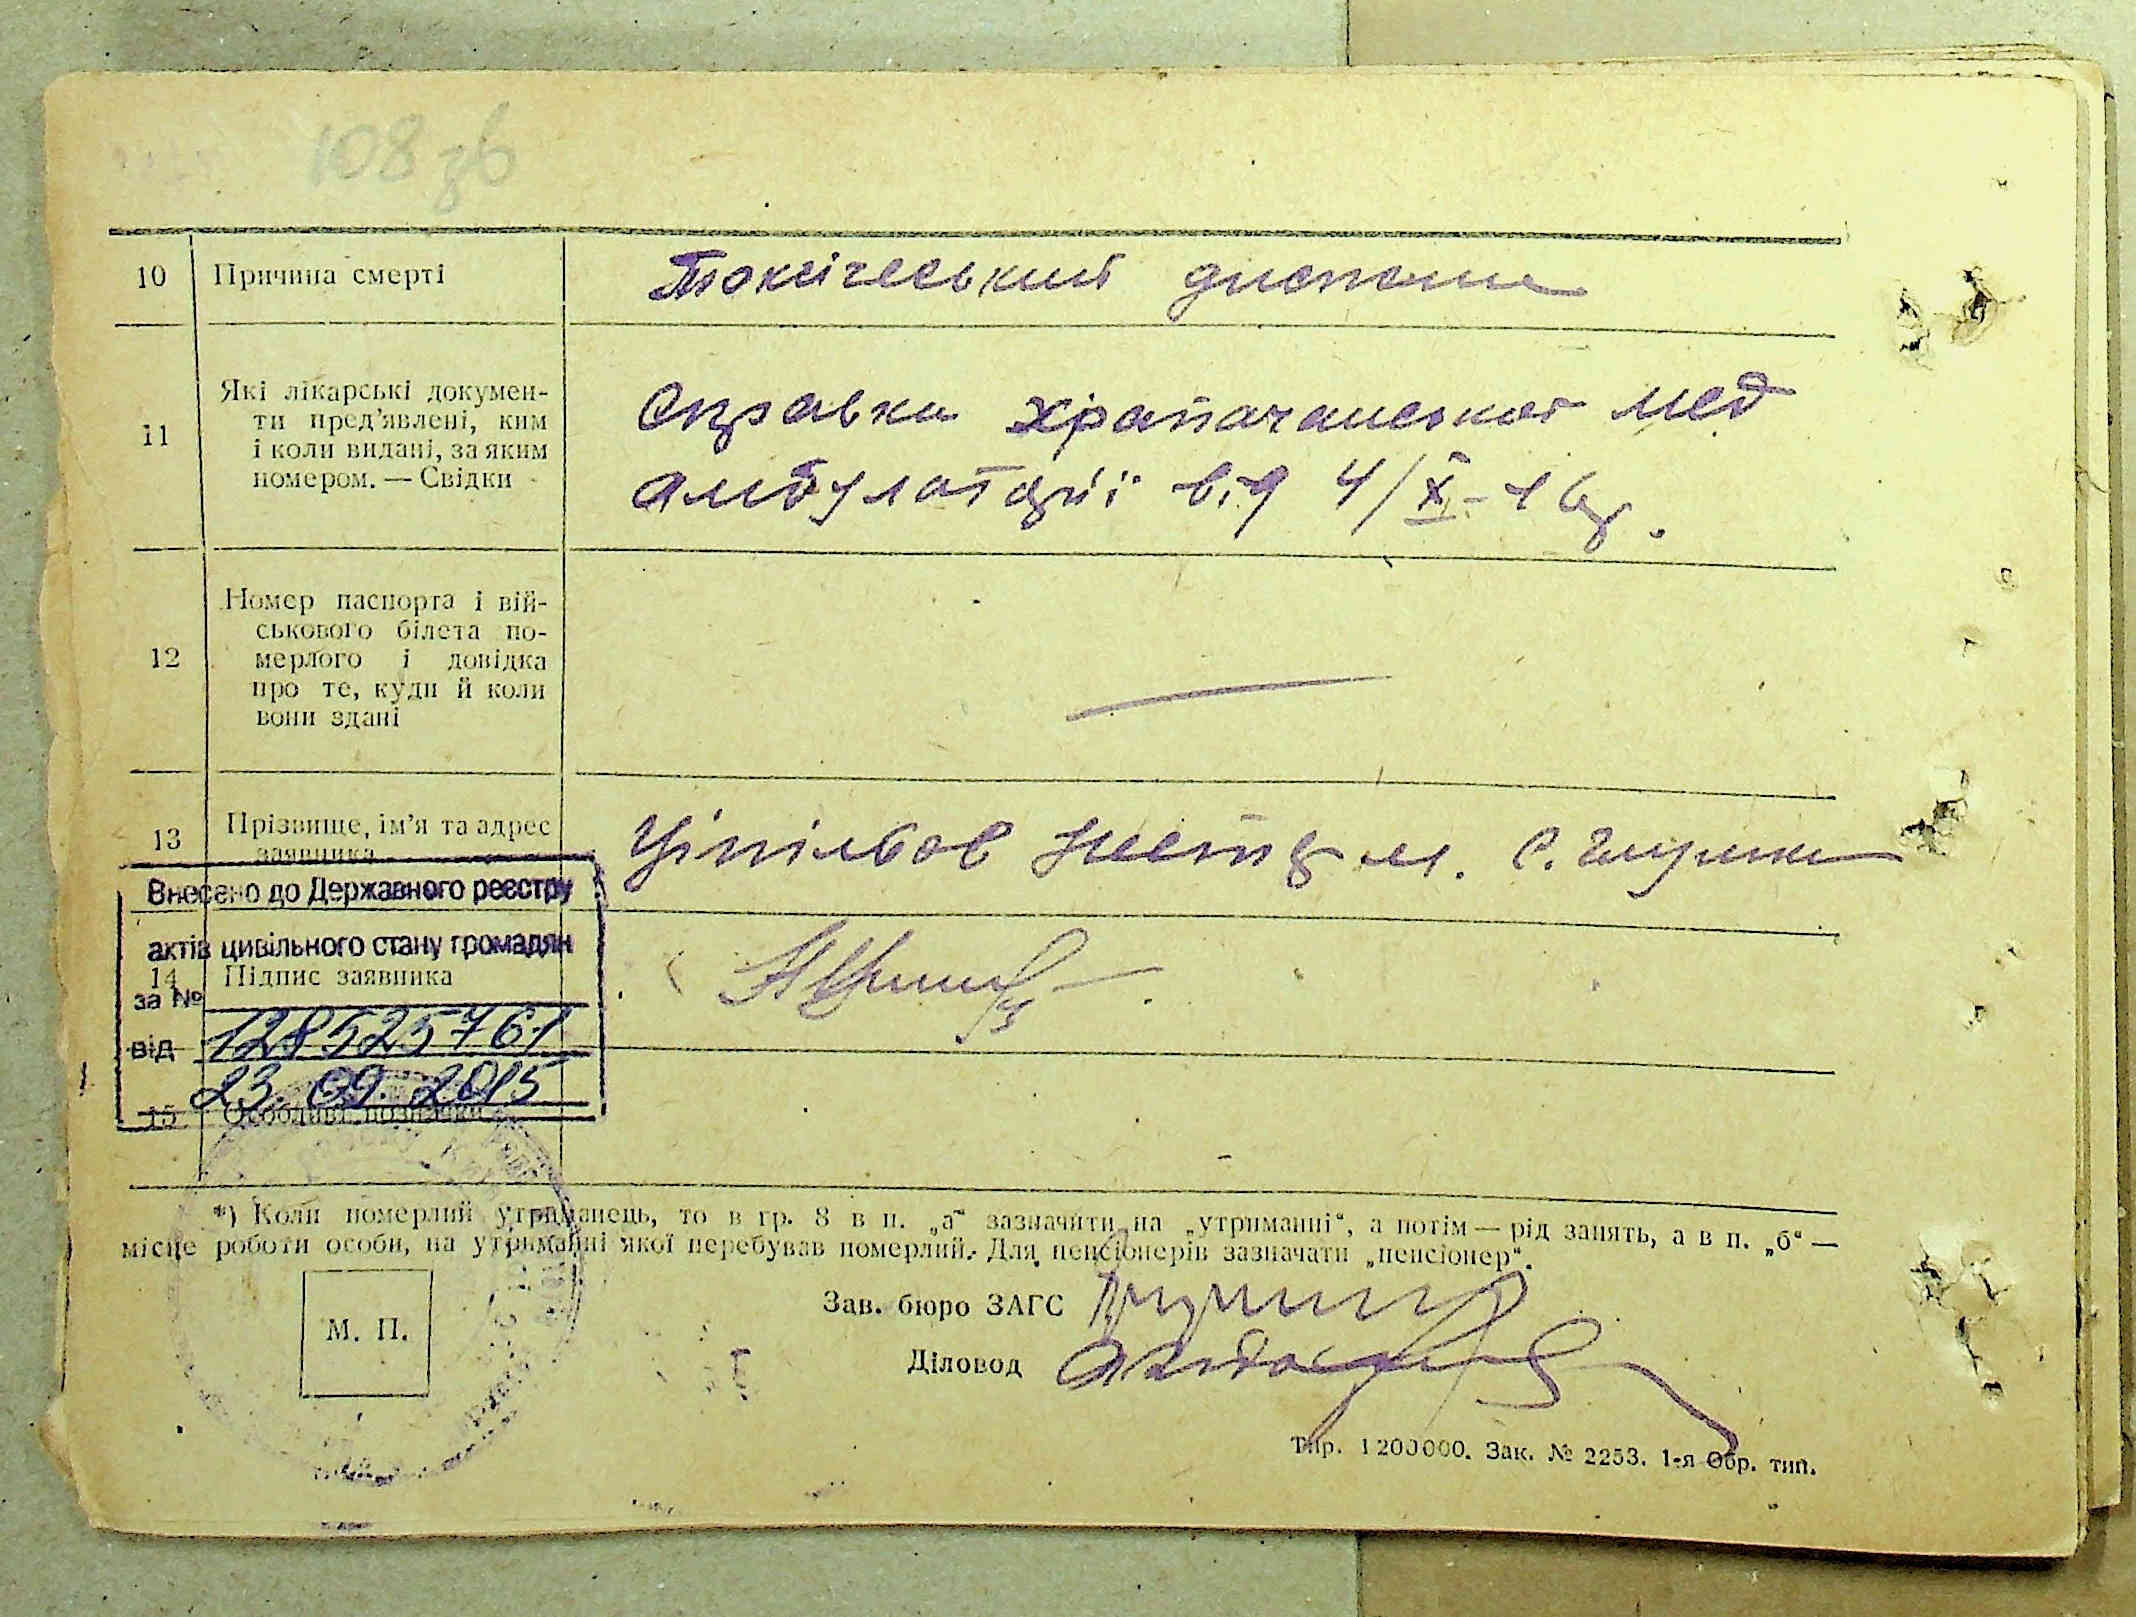 108 зв
10 Причина смерті
Токсічеський диспепсие
11 Які лікарські докумен-
ти пред'явлені, ким
і коли видані, за яким
номером. — Свідки
Справка мед
амбулаторії від 4/X
12 Номер паспорта і вій-
ськового білета по-
мерлого і довідка
про те, куди й коли
вони здані
—
13 Прізвище, ім'я та адрес
заявника
м. с.
Внесено до Державного реєстру
актів цивільного стану громадян
14 Підпис заявника
за №
від 128525761
23.09.2015
15 Особливі позначки
*) Коли померлий утриманець, то в гр. 8 в п. „а“ зазначити на „утриманні“, а потім — рід занять, а в п. „б“ —
місце роботи особи, на утриманні якої перебував померлий. Для пенсіонерів зазначати „пенсіонер“.
Зав. бюро ЗАГС
М. П.
Діловод
Тир. 1200000. Зак. № 2253. 1-я Обр. тип.